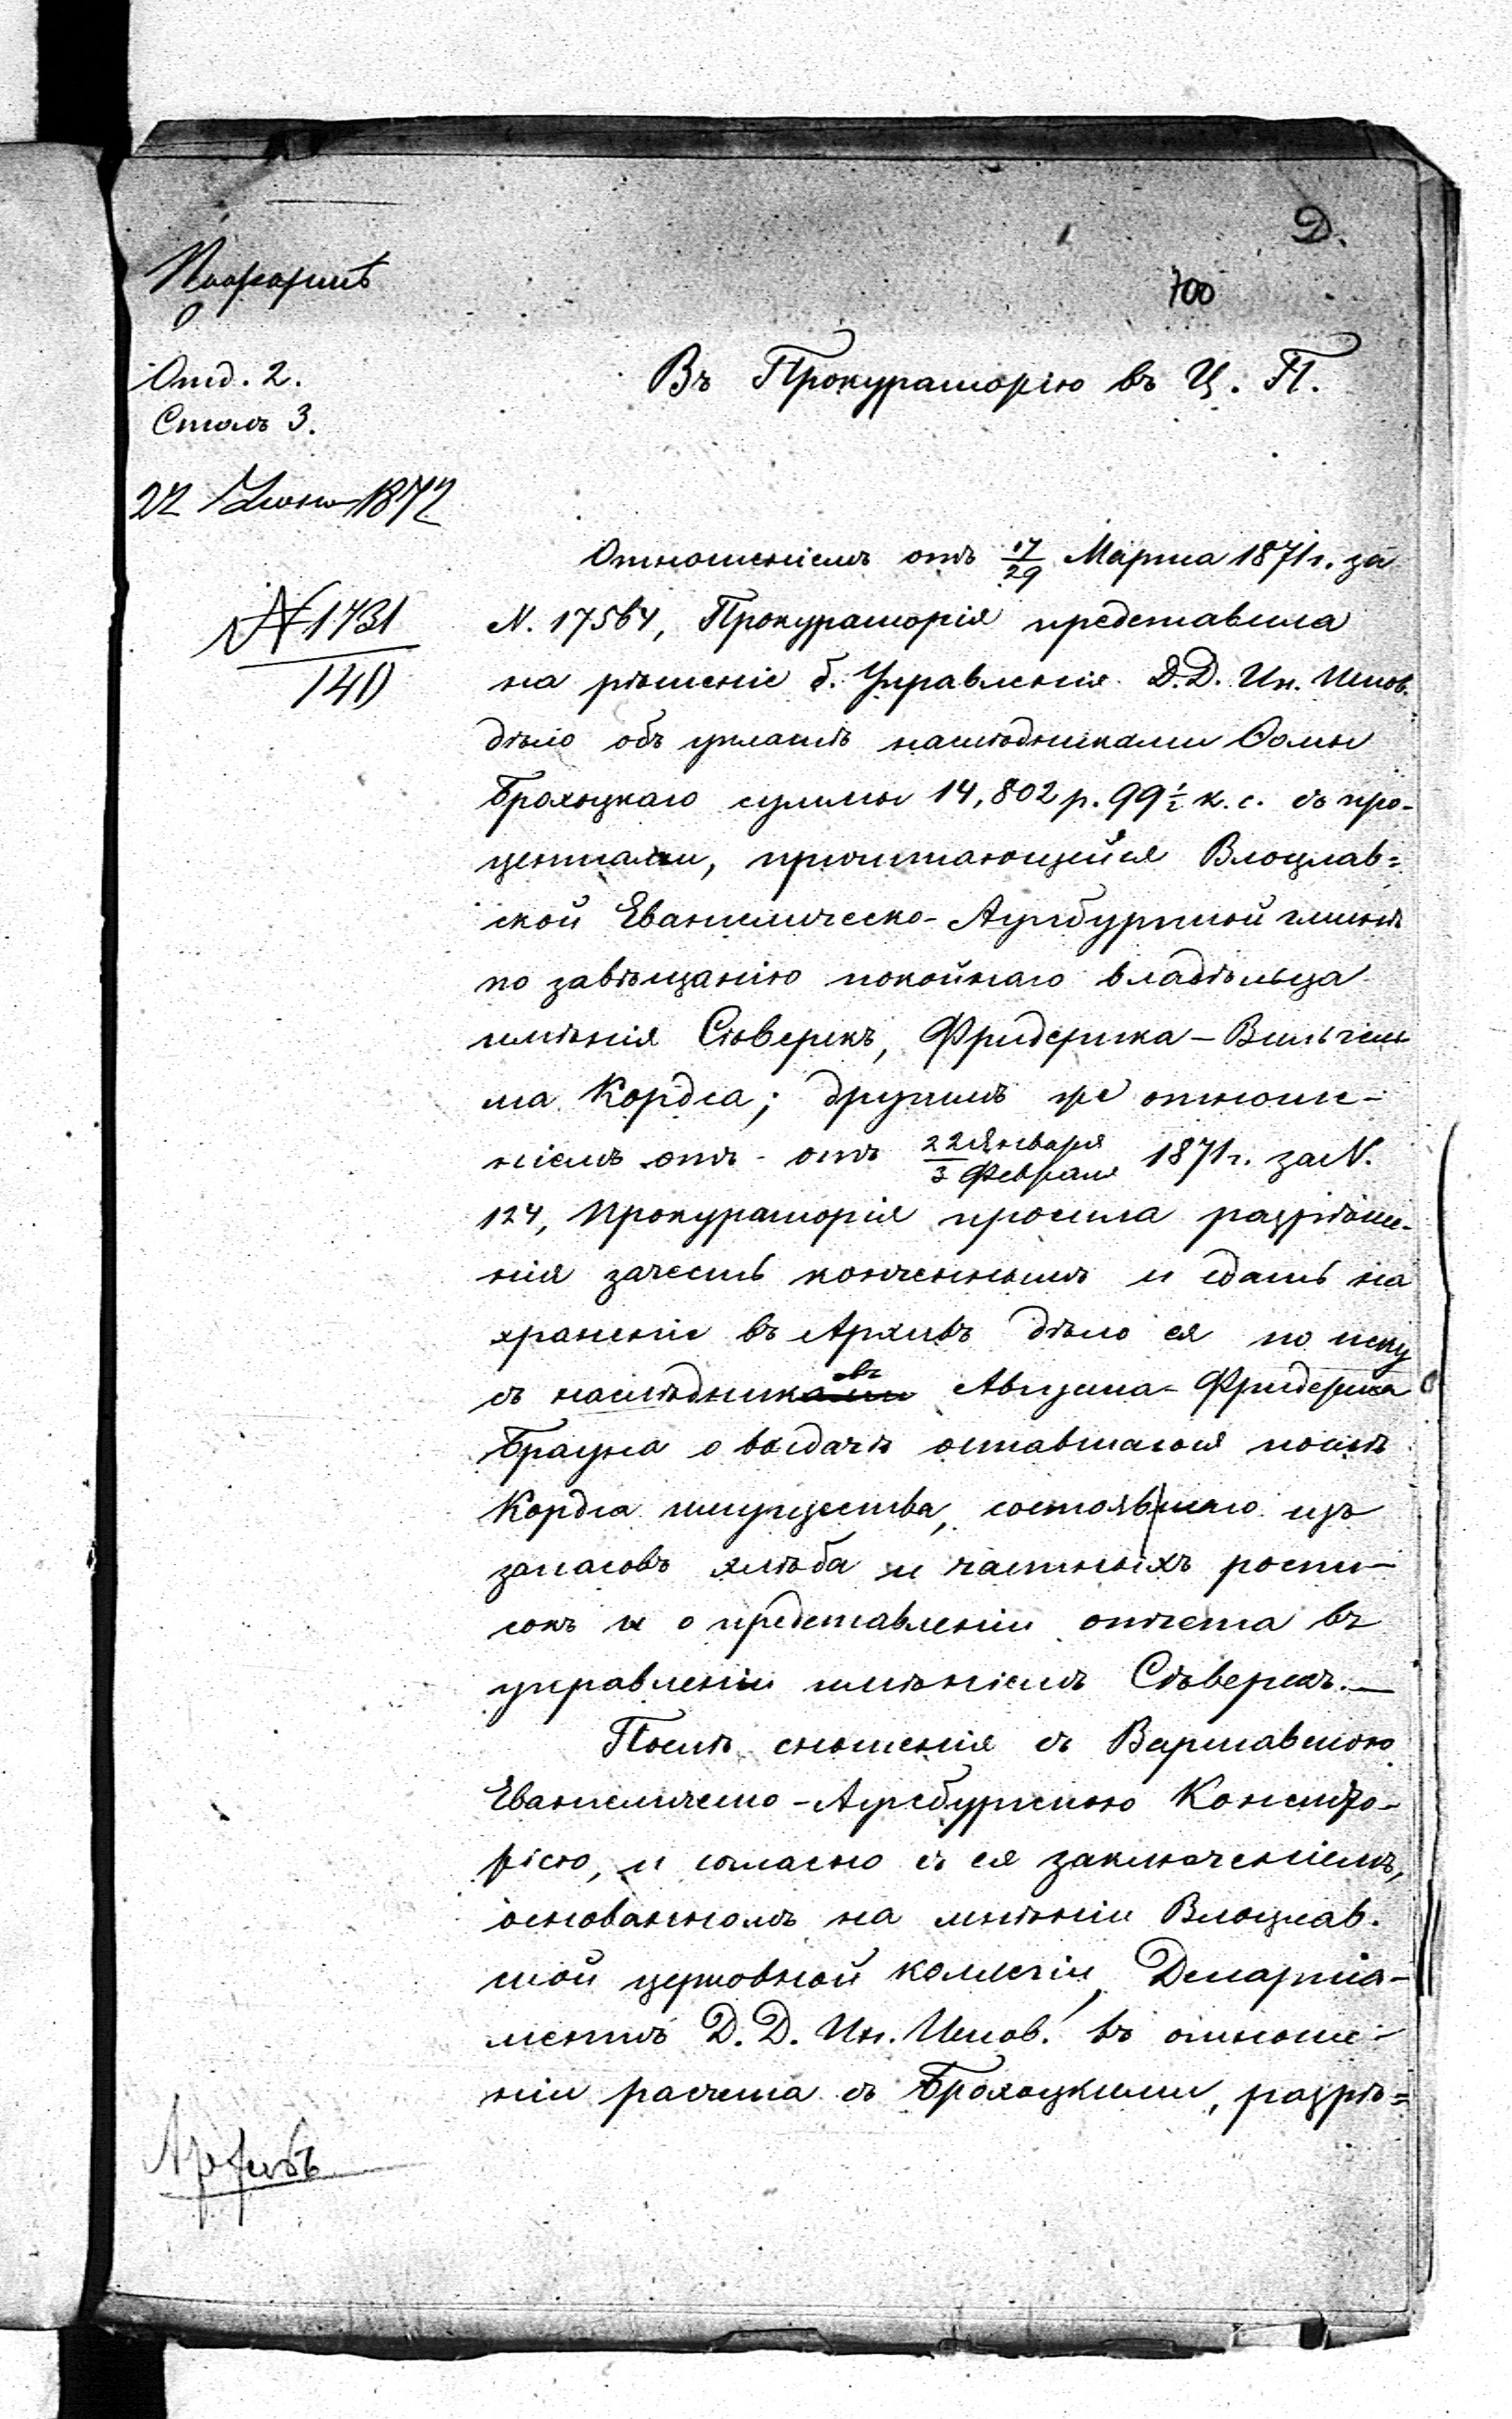 Д.
700
Отд. 2.
Столъ 3.
22 Июня 1872
№ 1731
140
Въ Прокураторію въ Ц. П.
Отношеніемъ отъ 17/29 Марта 1871 г. за
N. 17564, Прокураторія представила
на рѣшеніе б. Управленія Д.Д. Ин. Испов.
дѣло объ уплатѣ наслѣдниками Ѳомы
Брохоцкаго суммы 14,802 р. 99 1/2 к. с. съ про-
центами, причитающейся Влоцлав=
ской Евангелическо-Аугсбургской гминѣ
по завѣщанію покойнаго владѣльца
имѣнія Сѣверскъ, Фридерика-Вильгель
ма Кордса; другимъ же отноше-
ніемъ отъ - отъ 22 Января/3 Февраля 1871 г. за N.
124, Прокураторія просила разрѣше-
нія зачесть конченнымъ и сдать на
храненіе въ Архивъ дѣло ея по иску
съ наслѣдниками овъ Августа-Фридерика
Брауна о выдачѣ оставшагося послѣ
Кордса имущества, состоявшаго изъ
запасовъ хлѣба и частныхъ роспи-
сокъ и о представленіи отчета въ
управленіи имѣніемъ Сѣверскъ.—
Послѣ сношенія съ Варшавскою
Евангелическо-Аугсбургскою Консисто-
ріею, и согласно съ ея заключеніемъ,
основанномъ на мнѣніи Влоцлав-
ской церковной коллегіи, Департа-
ментъ Д. Д. Ин. Испов. въ отноше-
ніи расчета съ Брохоцкими, разрѣ=
Архивъ